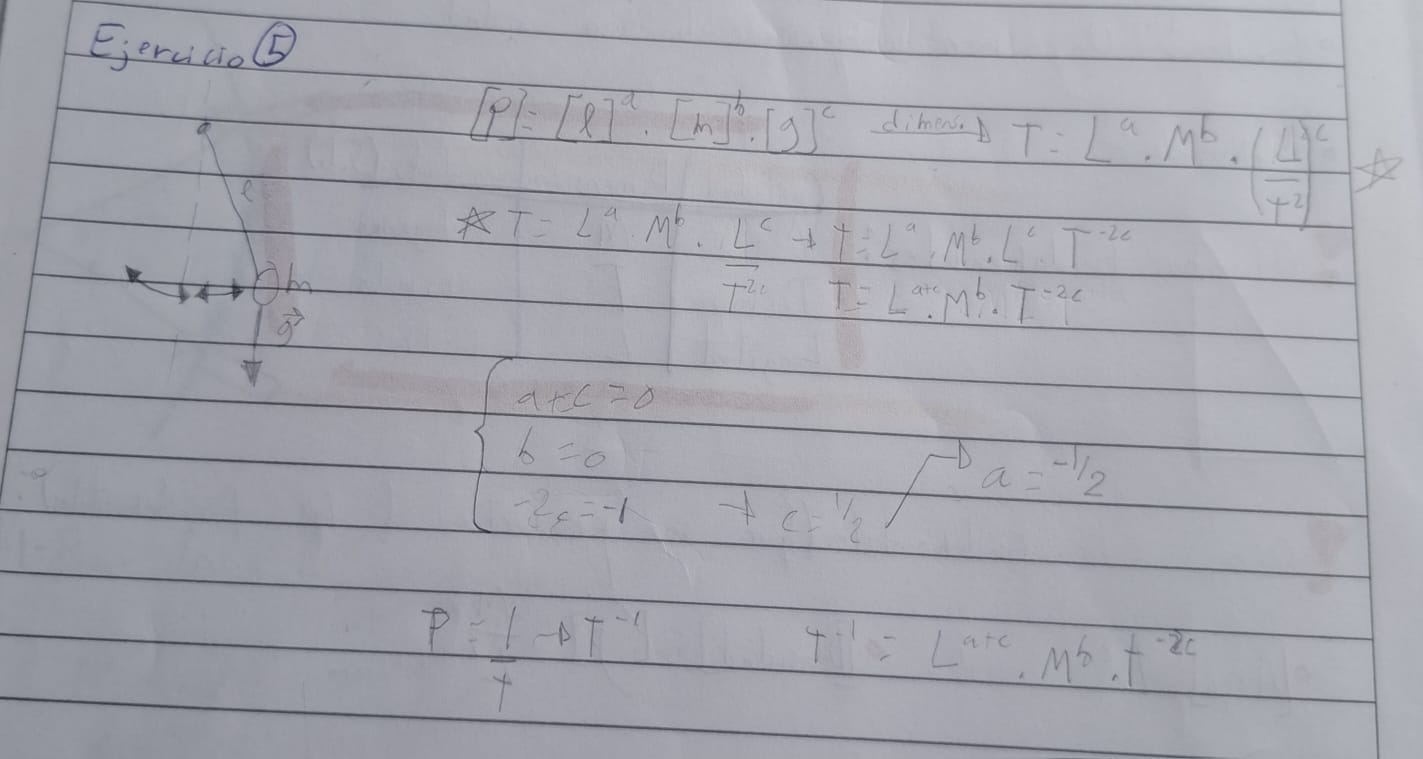 Ejercicio ⑤
[P] = [l]^a . [m]^b . [g]^c dimens. → T = L^a . M^b . (L/T^2)^c ☆
☆ T = L^a . M^b . L^c/T^2c → T = L^a . M^b . L^c . T^-2c
T = L^a+c . M^b . T^-2c
l
m
g⃗
a+c = 0
b = 0
-2c = -1 → c = 1/2 → a = -1/2
P = 1/T → T^-1 T^-1 = L^a+c . M^b . T^-2c